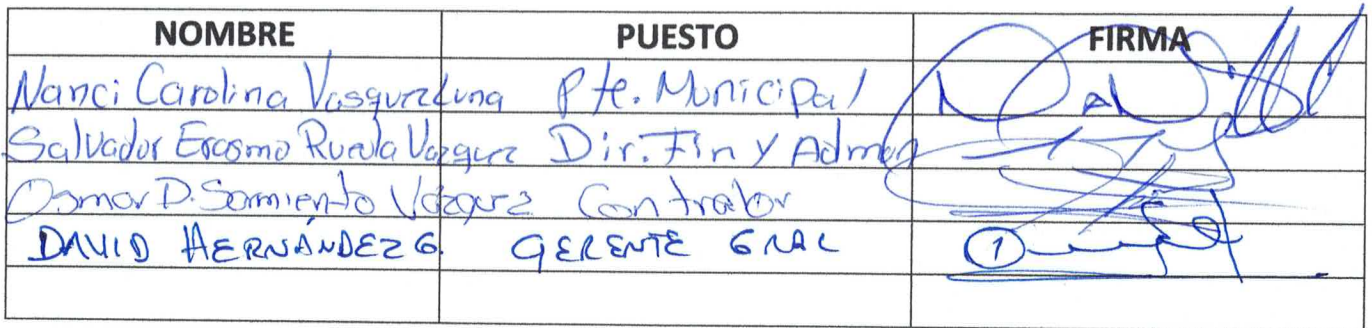 NOMBRE PUESTO FIRMA
Nanci Carolina Vasquez Luna Pte. Municipal
Salvador Erasmo Rueda Vazquez Dir. Fin y Admon
Osmar D. Sarmiento Vázquez Contralor
DAVID HERNÁNDEZ G. GERENTE GRAL